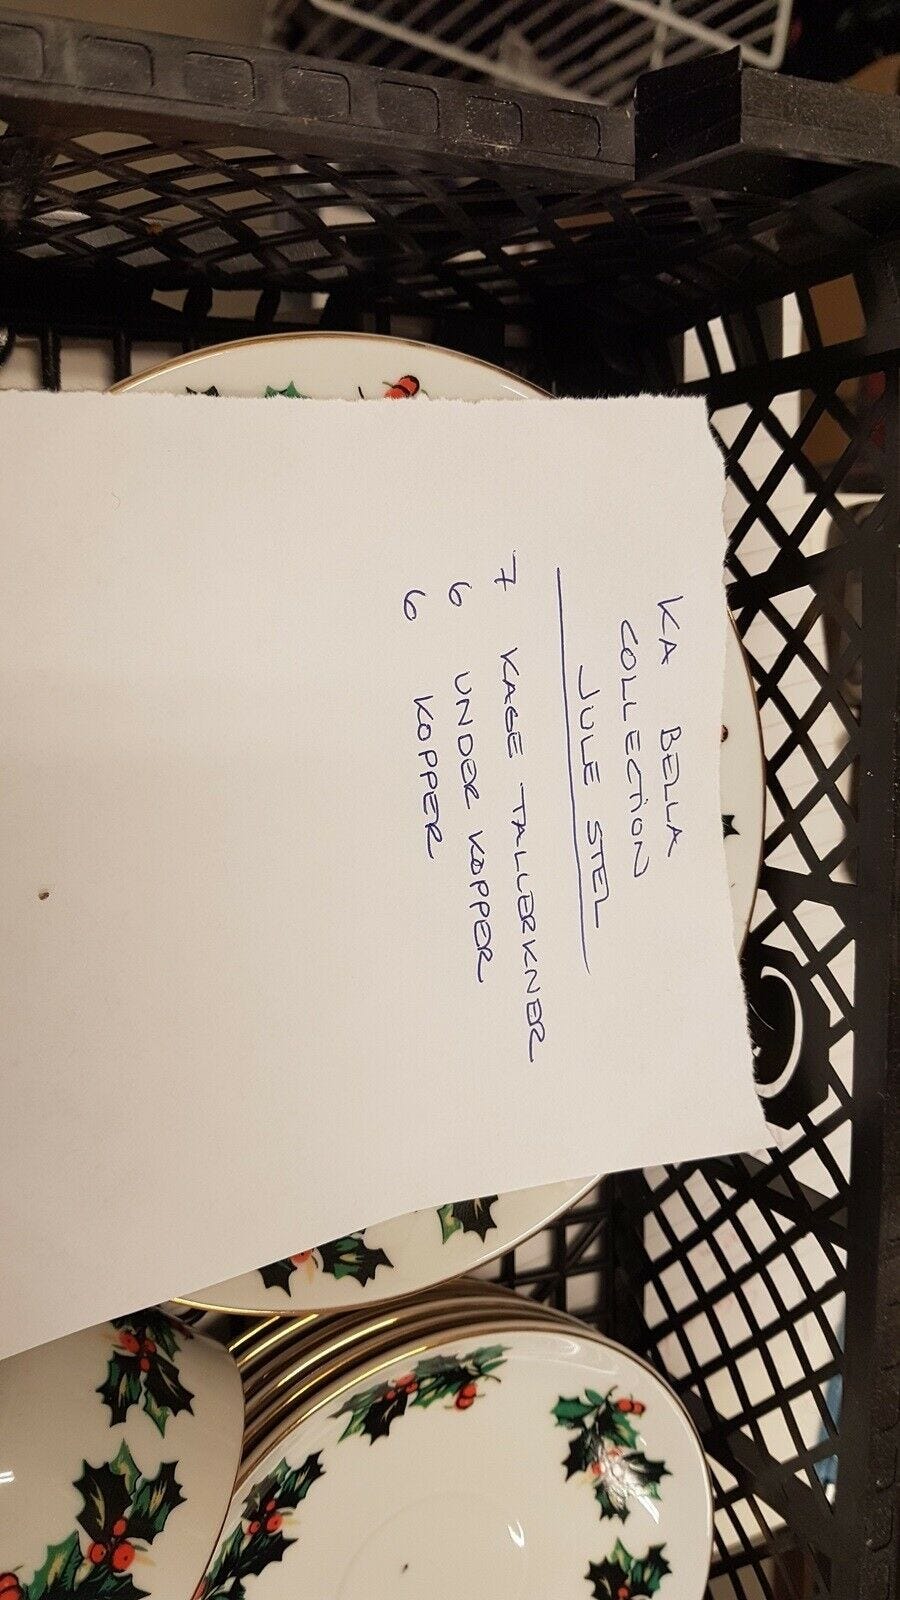 KA BELLA
COLLECTION
JULE STEL
7 KAGE TALLERKNER
6 UNDER KOPPER
6 KOPPER